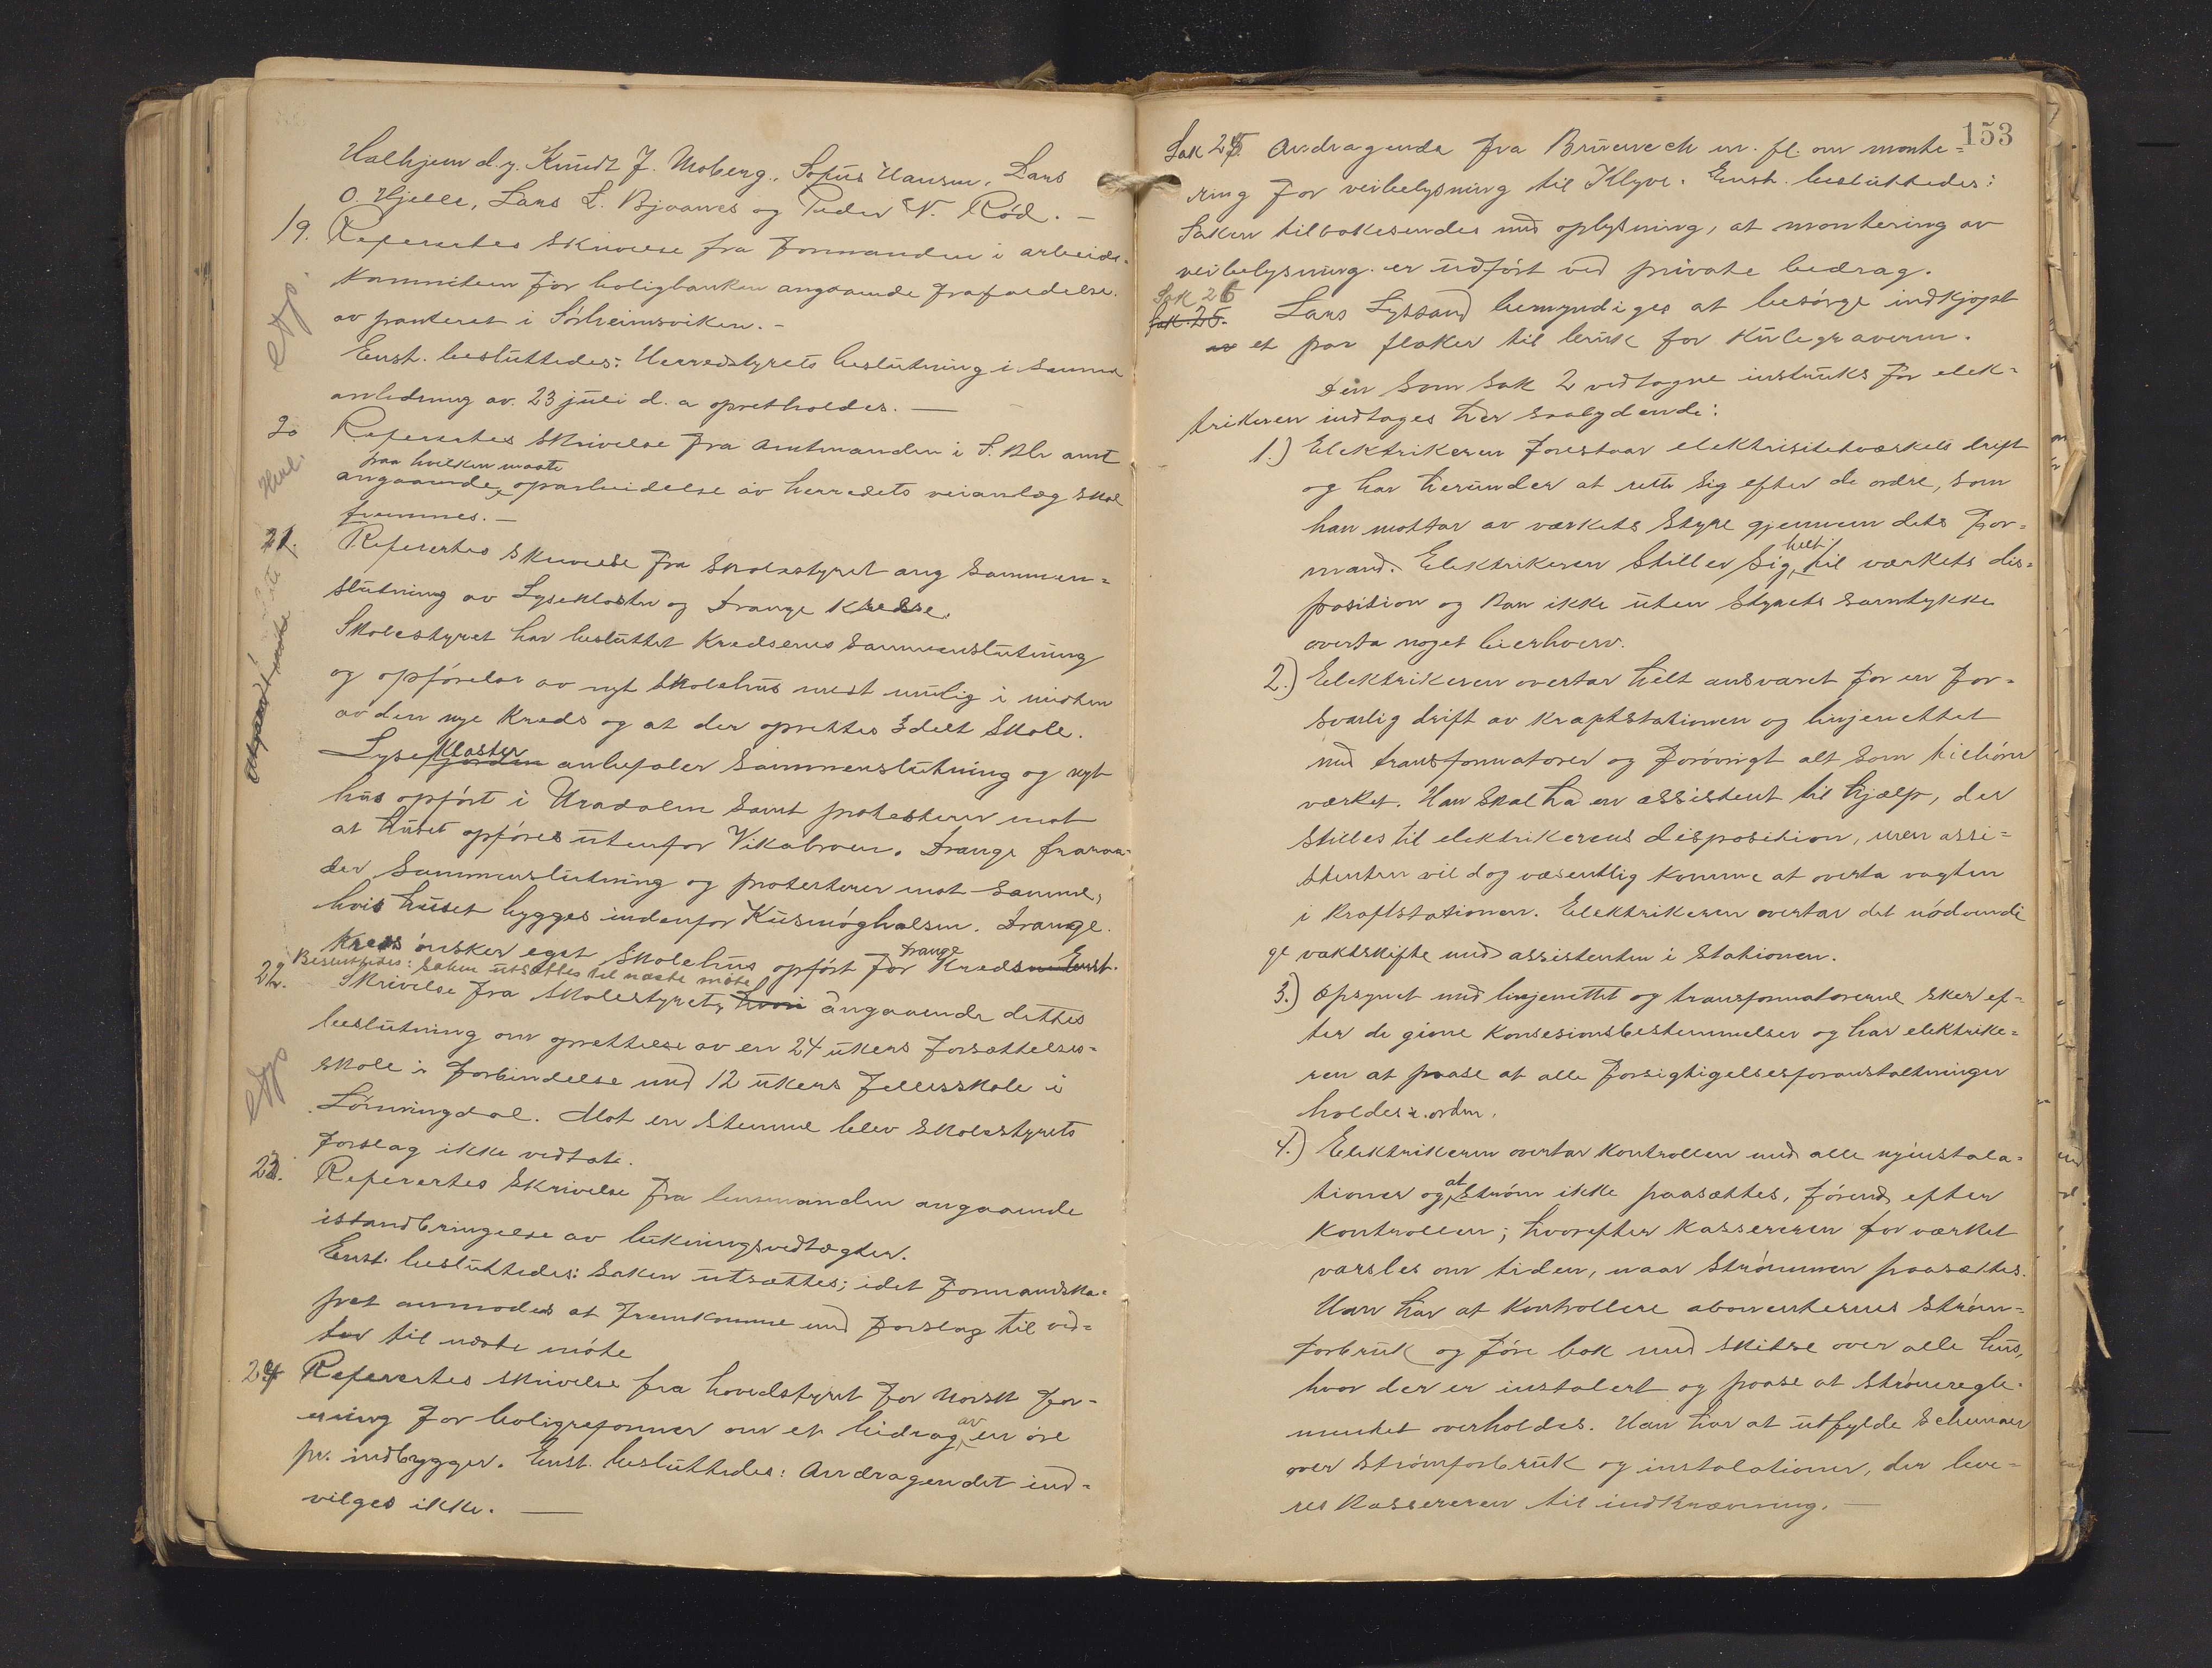 Halhjem d.y. Knudt J. Moberg, Sofus Hansen, Lars
O. Hjelle, Lars L. Bjaanes og Peder N. Rød. –
19. Refertes skrivelse fra formanden i arbeids-
komniteen for boligbanken angaaende frafaldelse
av panteret i Solheimsviken. –
Enst. besluttedes: Herredstyrets beslutning i samme
anledning av 23 juli d. a opretholdes. —
20 Refertes skrivelse fra Amtmanden i S. Bh amt
paa hvilken maate
angaaende oparbeidelse av herredets veianlæg skal
fremmes. –
21. Refertes skrivelse fra skolestyret ang sammen-
slutning av Lyseklostr og Drange kredse.
Skolestyret har besluttet kredsenes sammenslutning
og opførelse av nyt skolehus mest mulig i midten
av den nye kreds og at der oprettes 3delt skole.
kloster
Lysefjorden anbefaler sammenslutning og nyt
hus opført i Uradalen samt protesterer mot
at huset opføres utenfor Vikabroen. Drange fraraa-
der sammenslutning og protesterer mot samme,
hvis huset bygges indenfor Kusmøghalsen. Drange
kreds ønsker eget skolehus opført for Drange Kreds Enst.
Besluttedes: saken utsættes til næste møte
22. Skrivelse fra skolestyret, hvori angaaende dettes
beslutning om oprettelse av en 24 ukers forsættelses-
skole i forbindelse med 12 ukers fellesskole i
Lønningdal. Mot en stemme blev skolestyrets
forslag ikke vedtat.
23. Refertes skrivelse fra lensmanden angaaende
istandbringelse av lukningsvedtægter.
Enst. besluttedes: Saken utsættes, idet formandska-
pet anmodes at fremkomme med forslag til ved-
ter til næste møte
24 Refertes skrivelse fra hovedstyret for Norsk for-
ening for boligreformer om et bidrag av en øre
pr. indbygger. Enst. besluttedes: Andragendet ind-
vilges ikke. —
153
Sak 25. Andragende fra Bruenech m. fl. om monte-
ring for veibelysning til Klyve. Enst. besluttedes:
Saken tilbakesendes med oplysning, at montering av
veibelysning er udført ved private bedrag.
Sak 26
Sak 25. Lars Lyssand bemyndiges at besørge indkjøpt
av et par flaker til bruk for Kulegraveren.
Den som sak 2 vedtagne instruks for elek-
trikeren indtages her saalydende:
1.) Elektrikeren forestaar elektrisitetsværkets drift
og har herunder at rette sig efter de ordre, som
han mottar av værkets styre gjennem dets for-
mand. Elektrikeren stiller sig helt til værkets dis-
position og kan ikke uten styrets samtykke
overta noget bierhverv.
2.) Elektrikeren overtar helt ansvaret for en for-
svarlig drift av kraftstationen og linjenettet
med transformatorer og forøvrigt alt som tilhører
værket. Han skal ha en assistent til hjælp, der
stilles til elektrikerens disposition, men assi-
stenten vil dog væsentlig komme at overta vagten
i kraftstationen. Elektrikeren overtar det nødvendi
ge vaktskifte med assistenten i stationen.
3.) Opsynet med linjenettet og transformatorerne sker ef-
ter de givne konsesionsbestemmelser og har elektrike-
ren at paase at alle forsigtigelsesforanstaltninger
holdes i orden.
4.) Elektrikeren overtar kontrollen med alle nyinstala-
tioner og at strøm ikke paasættes, førend efter
kontrollen; hvorefter kassereren for værket
varsles om tiden, naar strømmen paasættes.
Han har at kontrollere abonenternes strøm-
forbruk og føre bok med skitse over alle hus,
hvor der er instalert og paase at strømregle-
mentet overholdes. Han har at utfylde schemaer
over strømforbruk og instalationer, der leve-
res kassereren til indkrævning. —